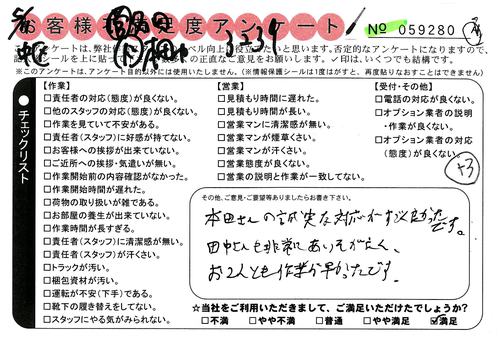 お客様満足度アンケート
3334
No 059280
※このアンケートは、アンケート目的以外には使用いたしません。(※情報保護シールは1度はがすと、再度貼りなおすことはできません。)
チェックリスト
【作業】
□責任者の対応(態度)が良くない。
□他のスタッフの対応(態度)が良くない。
□作業を見ていて不安がある。
□責任者(スタッフ)に好感が持てない。
□お客様への挨拶が出来ていない。
□ご近所への挨拶・気遣いが無い。
□作業開始前の内容確認がなかった。
□作業開始時間が遅れた。
□荷物の取り扱いが雑である。
□お部屋の養生が出来ていない。
□作業時間が長すぎる。
□責任者(スタッフ)に清潔感が無い。
□責任者(スタッフ)が汗くさい。
□トラックが汚い。
□梱包資材が汚い。
□運転が不安(下手)である。
□靴下の履き替えをしてない。
□スタッフにやる気がみられない。
【営業】
□見積もり時間に遅れた。
□見積もり時間が長い。
□営業マンに清潔感が無い。
□営業マンが煙草くさい。
□営業マンが汗くさい。
□営業態度が良くない。
□営業の説明と作業が一致してない。
【受付・その他】
□電話の対応が良くない。
□オプション業者の説明
・作業が良くない。
□オプション業者の対応
(態度)が良くない。
+3
その他、ご意見・ご要望等ありましたらお書き下さい。
本田さんの誠実な対応がすごく良かったです。
田中さんも非常にあいそがよく、
お2人とも作業が早かったです。
☆当社をご利用いただきまして、ご満足いただけたでしょうか?
□不満 □やや不満 □普通 □やや満足 ☑満足